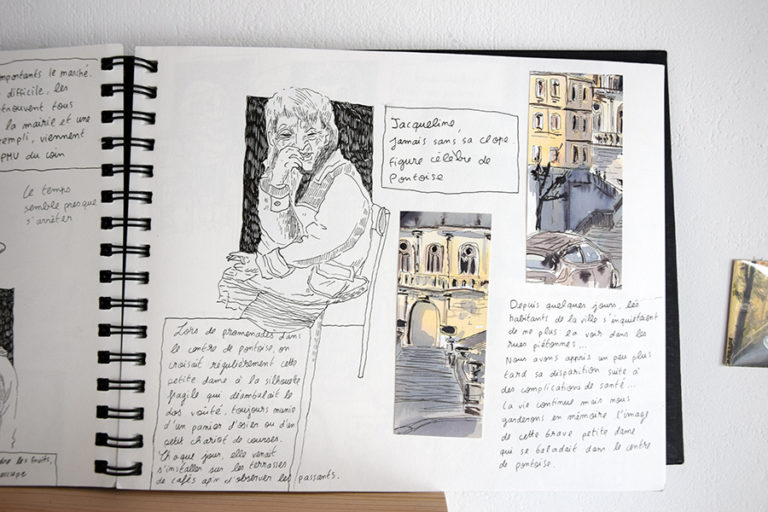 mportants le marché.
difficile, les
trouvent tous
la mairie et une
empli, viennent
PMU du coin
Le temps
semble presque
s'arrêter
les fruits,
Jacqueline,
jamais sans sa clope.
figure célèbre de
Pontoise
Lors de promenades dans
le centre de pontoise, on
croisait régulièrement cette
petite dame à la silhouette
fragile qui déambulait le
dos voûté, toujours munie
d'un panier d'osier ou d'un
petit chariot de courses.
Chaque jour, elle venait
s'installer sur les terrasses
de cafés afin d'observer les passants.
Depuis quelques jours, les
habitants de la ville s'inquiétaient
de ne plus la voir dans les
rues piétonnes...
Nous avons appris un peu plus
tard sa disparition suite à
des complications de santé...
La vie continue mais nous
garderons en mémoire l'image
de cette brave petite dame
qui se baladait dans le centre
de pontoise.